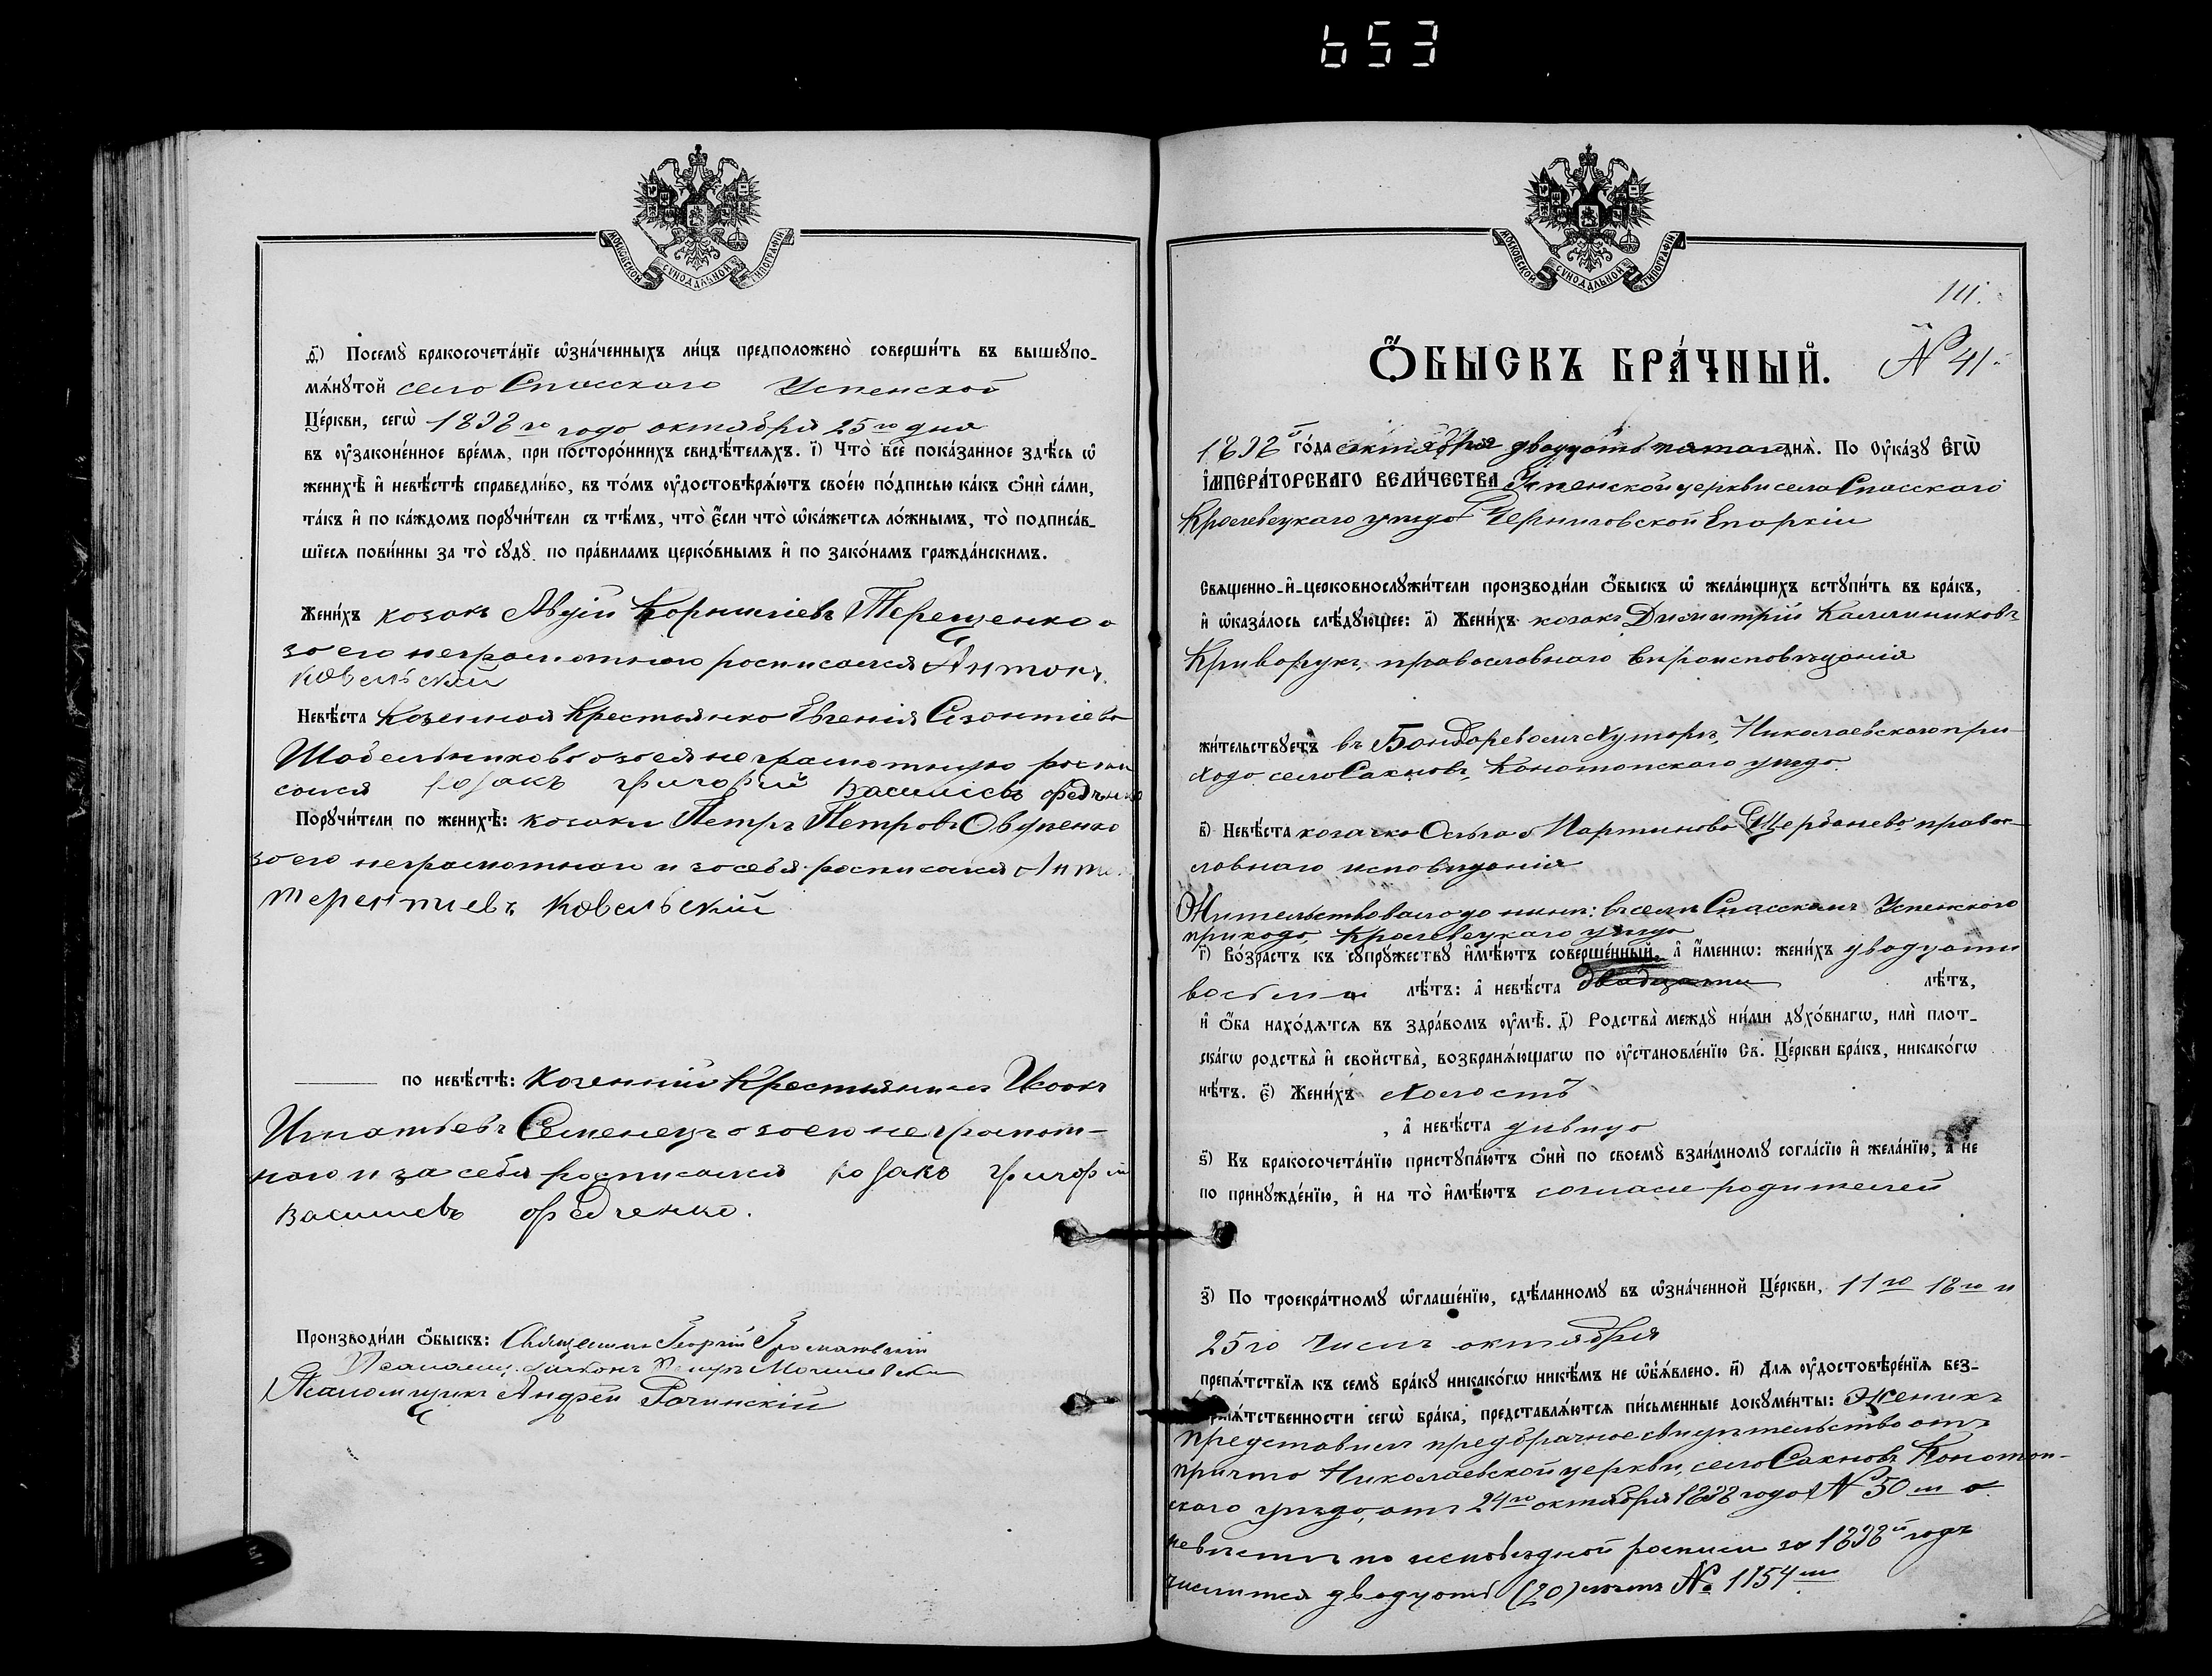 653
МОСКОВСКОЙ СѴНОДАЛЬНОЙ ТИПОГРАФІИ
д҃і) Посемꙋ̀ бракосочета́нїе ѡ҆зна́ченныхъ ли́цъ предположено̀ соверши́ть въ вышеꙋпо-
мѧ́нꙋтой село Спасского Успенской
Це́ркви, сегѡ̀ 1898 го годо октября 25 го дня
въ ᲂу҆законе́нное вре́мѧ, при посторо́ннихъ свидѣ́телѧхъ. і҃) Что̀ всѐ пока́занное здѣ́сь ѡ҆
женихѣ̀ и҆ невѣ́стѣ справедли́во, въ то́мъ ᲂу҆достовѣрѧ́ютъ свое́ю по́дписью ка́къ ѻ҆нѝ са́ми,
та́къ и҆ по ка́ждомъ порꙋчи́тели съ тѣ́мъ, что̀ є҆́сли что̀ ѡ҆ка́жетсѧ ло́жнымъ, то̀ подписа́в-
шїесѧ пови́нны за то̀ сꙋдꙋ̀ по пра́виламъ церко́внымъ и҆ по зако́намъ гражда́нскимъ.
Жени́хъ козакъ Авдій Корнилієвъ Терещенко а
за его неграмотного росписался Антонъ
Ковельский
Невѣ́ста Козенная Крестьянко Евгенія
неграмотную роспи
сался козакъ григорій Васильевъ федченко
Порꙋчи́тели по женихѣ̀: козаки Петръ Петровъ
за его неграмотного и за себя росписался Анто
Терентиевъ Ковельскій
по невѣ́стѣ: Козенний Крестьянинъ Исаакъ
Игнатьевъ Семенецъ а за его неграмот-
ного и за себя росписался козакъ григорій
Васильевъ федченко.
Производи́ли ѻ҆́быскъ: Священникъ Георгій
Псаломщикъ Андрей Рочинскій
МОСКОВСКОЙ СѴНОДАЛЬНОЙ ТИПОГРАФІИ
111.
Ѻ҆́БЫСКЪ БРА́ЧНЫЙ. № 41.
1898 го́да октября двадцать пятого днѧ̀. По ᲂу҆ка́зꙋ є҆гѡ̀
і҆мпера́торскагѡ вели́чества Успенской церкви села Спасского
Кролевецкаго уѣзда Черниговской Епархіи
Свѧще́нно-и҆-церковнослꙋжи́тели производи́ли ѻ҆́быскъ ѡ҆ жела́ющихъ встꙋпи́ть въ бра́къ,
и҆ ѡ҆каза́лось слѣ́дꙋющее: а҃) Жени́хъ козакъ Димитрій Каллиниковъ
Криворукъ, православнаго вѣроисповѣданія
жи́тельствꙋетъ въ Бондаревомъ Хуторѣ, Николаевского при-
ходо село Сахновъ, Конотопского уѣздо
в҃) Невѣ́ста козачко Ольга Мартиново Щербанево правос-
ловнаго исповѣданія
Жительствовало до нынѣ: въ селѣ Спасскомъ Успенского
приходо, Кролевецкаго уѣздо
г҃) Во́зрастъ къ сꙋпрꙋ́жествꙋ и҆мѣ́ютъ соверше́нный, а҆ и҆́меннѡ: жени́хъ двадцати
восьми лѣ́тъ: а҆ невѣ́ста двадцати лѣ́тъ,
и҆ ѻ҆́ба нахо́дѧтсѧ въ здра́вомъ ᲂу҆мѣ̀. д҃) Родства̀ междꙋ̀ ни́ми дꙋхо́внагѡ, илѝ плот-
ска́гѡ родства̀ и҆ сво́йства, возбранѧ́ющагѡ по ᲂу҆становле́нїю Св. Це́ркви бра́къ, никако́гѡ
нѣ́тъ. є҃) Жени́хъ холостъ
, а҆ невѣ́ста дѣвицо
ѕ҃) Къ бракосочета́нїю пристꙋпа́ютъ ѻ҆нѝ по своемꙋ̀ взаи́мномꙋ согла́сїю и҆ жела́нїю, а҆ не
по принꙋжде́нїю, и҆ на то̀ и҆мѣ́ютъ согласіе родителей
з҃) По троекра́тномꙋ ѡ҆глаше́нїю, сдѣ́ланномꙋ въ ѡ҆зна́ченной Це́ркви, 11 го 18 го и
25 го числъ октября
препѧ́тствїѧ къ семꙋ̀ бра́кꙋ никако́гѡ никѣ́мъ не ѡ҆б̾ѧ́влено. и҃) Длѧ ᲂу҆достовѣре́нїѧ без-
препѧ́тственности сегѡ̀ бра́ка, представлѧ́ютсѧ пи́сьменные докꙋме́нты: Женихъ
представилъ предбрачное свидѣтельство отъ
причто Николаевской церкви, село Сахновъ Конотоп-
ского уѣздо, отъ 24 го октября 1898 годо № 50 м а
невѣста по исповѣдной росписи за 1898 й годъ
числится двадцать (20) лѣтъ № 1154 м